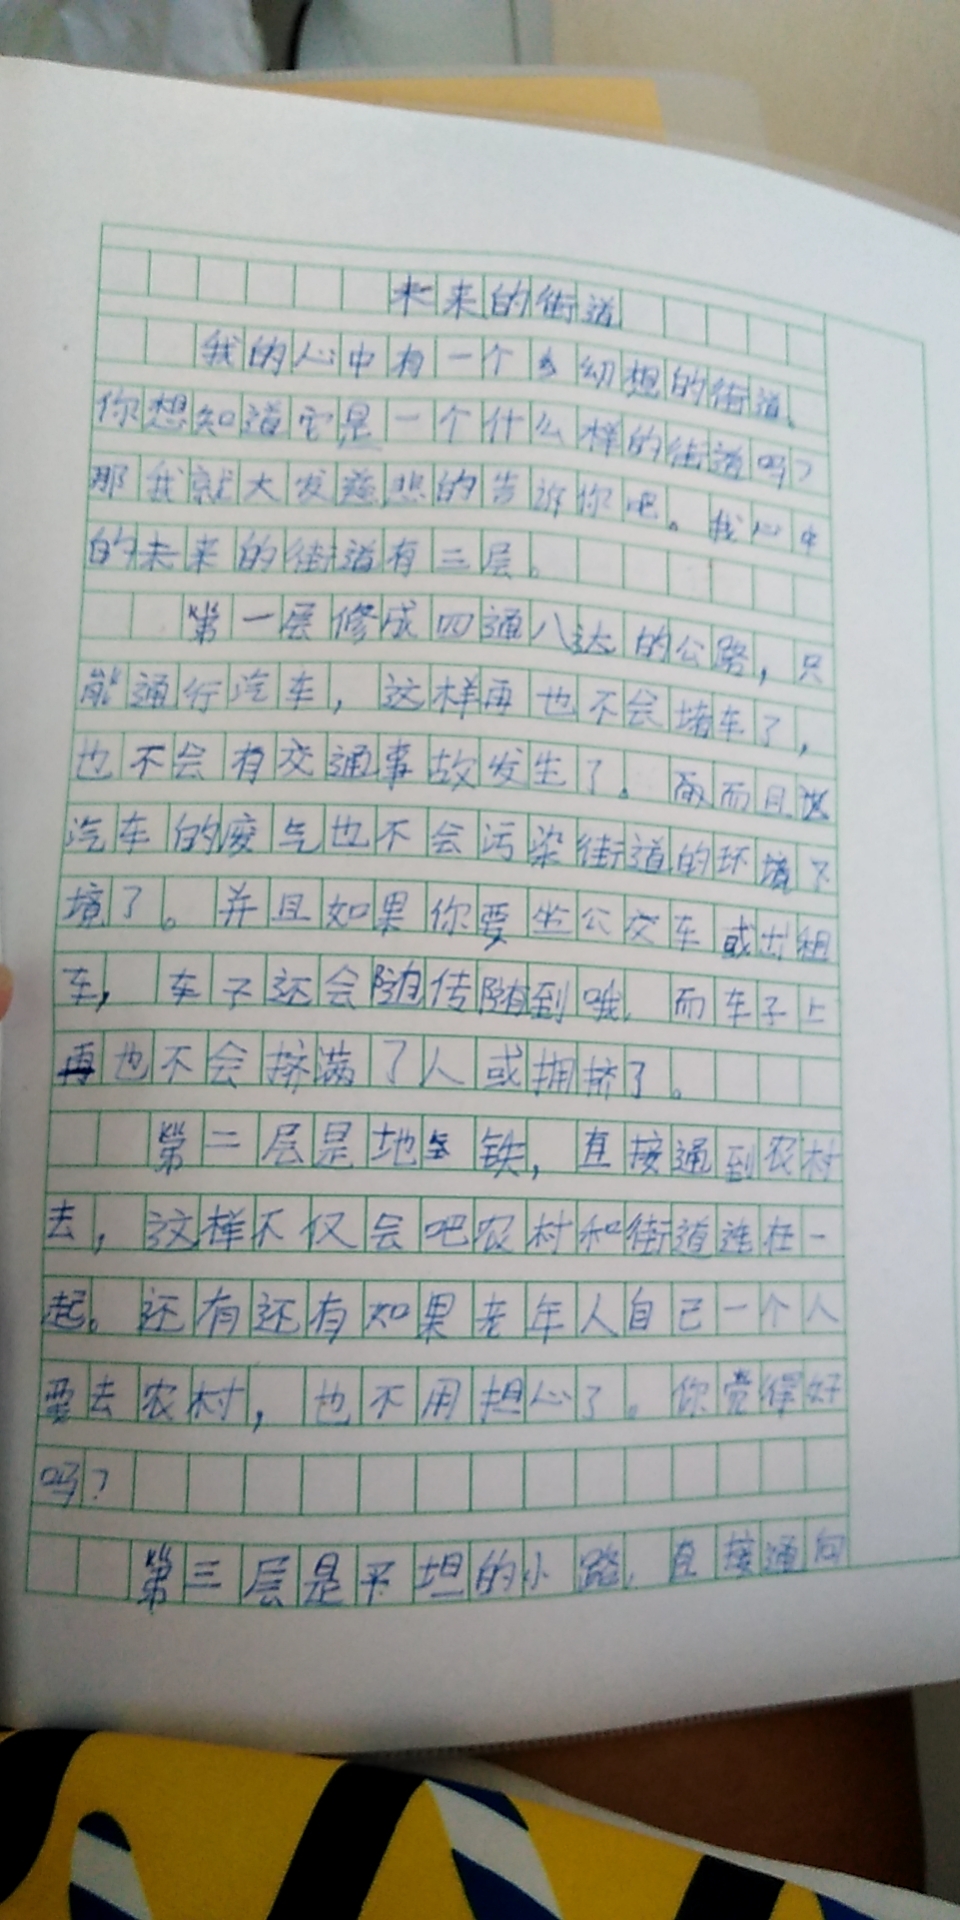 未来的街道
我的心中有一个幻想的街道。
你想知道它是一个什么样的街道吗？
那我就大发慈悲的告诉你吧。我心中
的未来的街道有三层。
第一层修成四通八达的公路，只
能通行汽车，这样再也不会堵车了，
也不会有交通事故发生了。而且
汽车的废气也不会污染街道的环
境了。并且如果你要坐公交车或出租
车，车子还会随传随到哦，而车子上
再也不会挤满了人或拥挤了。
第二层是地铁，直接通到农村
去，这样不仅会吧农村和街道连在一
起。还有还有如果老年人自己一个人
要去农村，也不用担心了。你觉得好
吗？
第三层是平坦的小路，直接通向